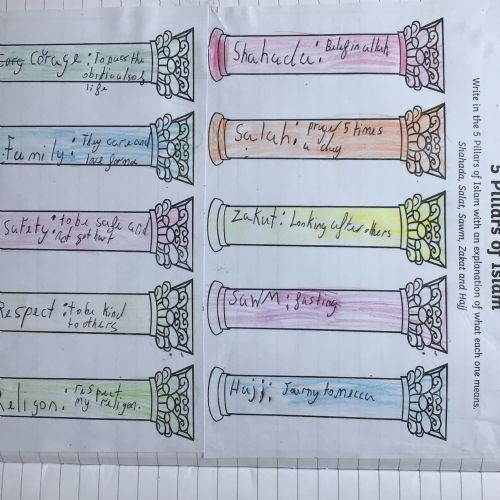 5 Pillars of Islam
Write in the 5 Pillars of Islam with an explanation of what each one means.
Shahada, Salat, Sawm, Zakat and Hajj
Shahada: Belief in allah
Salah: pray 5 times
a day
Zakut: Looking after others
SawM: fasting
Hajj: Journy to mecca
Corage: To pass the
obsticalsof
life
Family: They care and
love for me
Safety: to be safe and
not get hurt
Respect: to be kind
to others
Religon: respect
my religon.